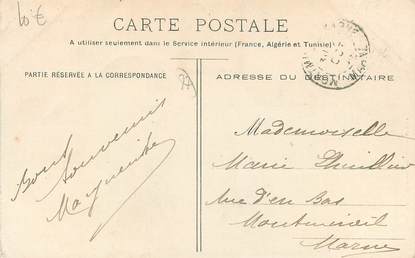 10€
CARTE POSTALE
A utiliser seulement dans le Service intérieur (France, Algérie et Tunisie)
PARTIE RÉSERVÉE A LA CORRESPONDANCE
ADRESSE DU DESTINATAIRE
Bons
souvenirs
Marguerite
Mademoiselle
Marie
Rue d'en Bas
Montmirail
Marne